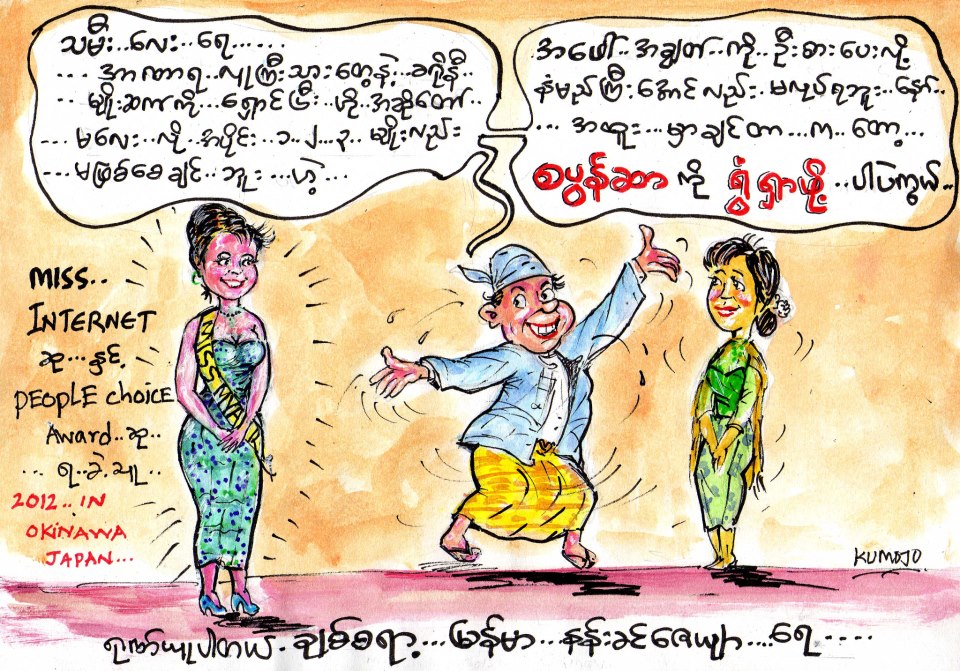 သမီး..လေး..ရေ.....
...အာဏာရ..လူကြီးသားတွေနဲ့..ခရိုနီ..
..မျိုးဆက်ကို...ရှောင်ပြီး..ဟို..အဆိုတော်..
..မလေး..လို..အပိုင်း..၁..၂..၃..မျိုးလည်း
...မဖြစ်စေချင်..ဘူး...ဟဲ့...
အဖေါ်..အချွတ်..ကို..ဦးစားပေးလို့
နံမည်ကြီးအောင်လည်း..မလုပ်ရဘူး..နော်..
...အထူး...မှာချင်တာ...က..တော့...
စပွန်ဆာကို ရှုံ့ရှာဖို့..ပါပဲကွယ်..
MISS..
INTERNET
ဆု...နှင့်
PEOPLE choice
Award..ဆု..
...ရ..ခဲ့..သူ..
2012..IN
OKINAWA
JAPAN...
KUMOJO
ဂုဏ်ယူပါတယ်.ချစ်စရာ့...မြန်မာ..နန်းခင်ဇေယျာ...ရေ....